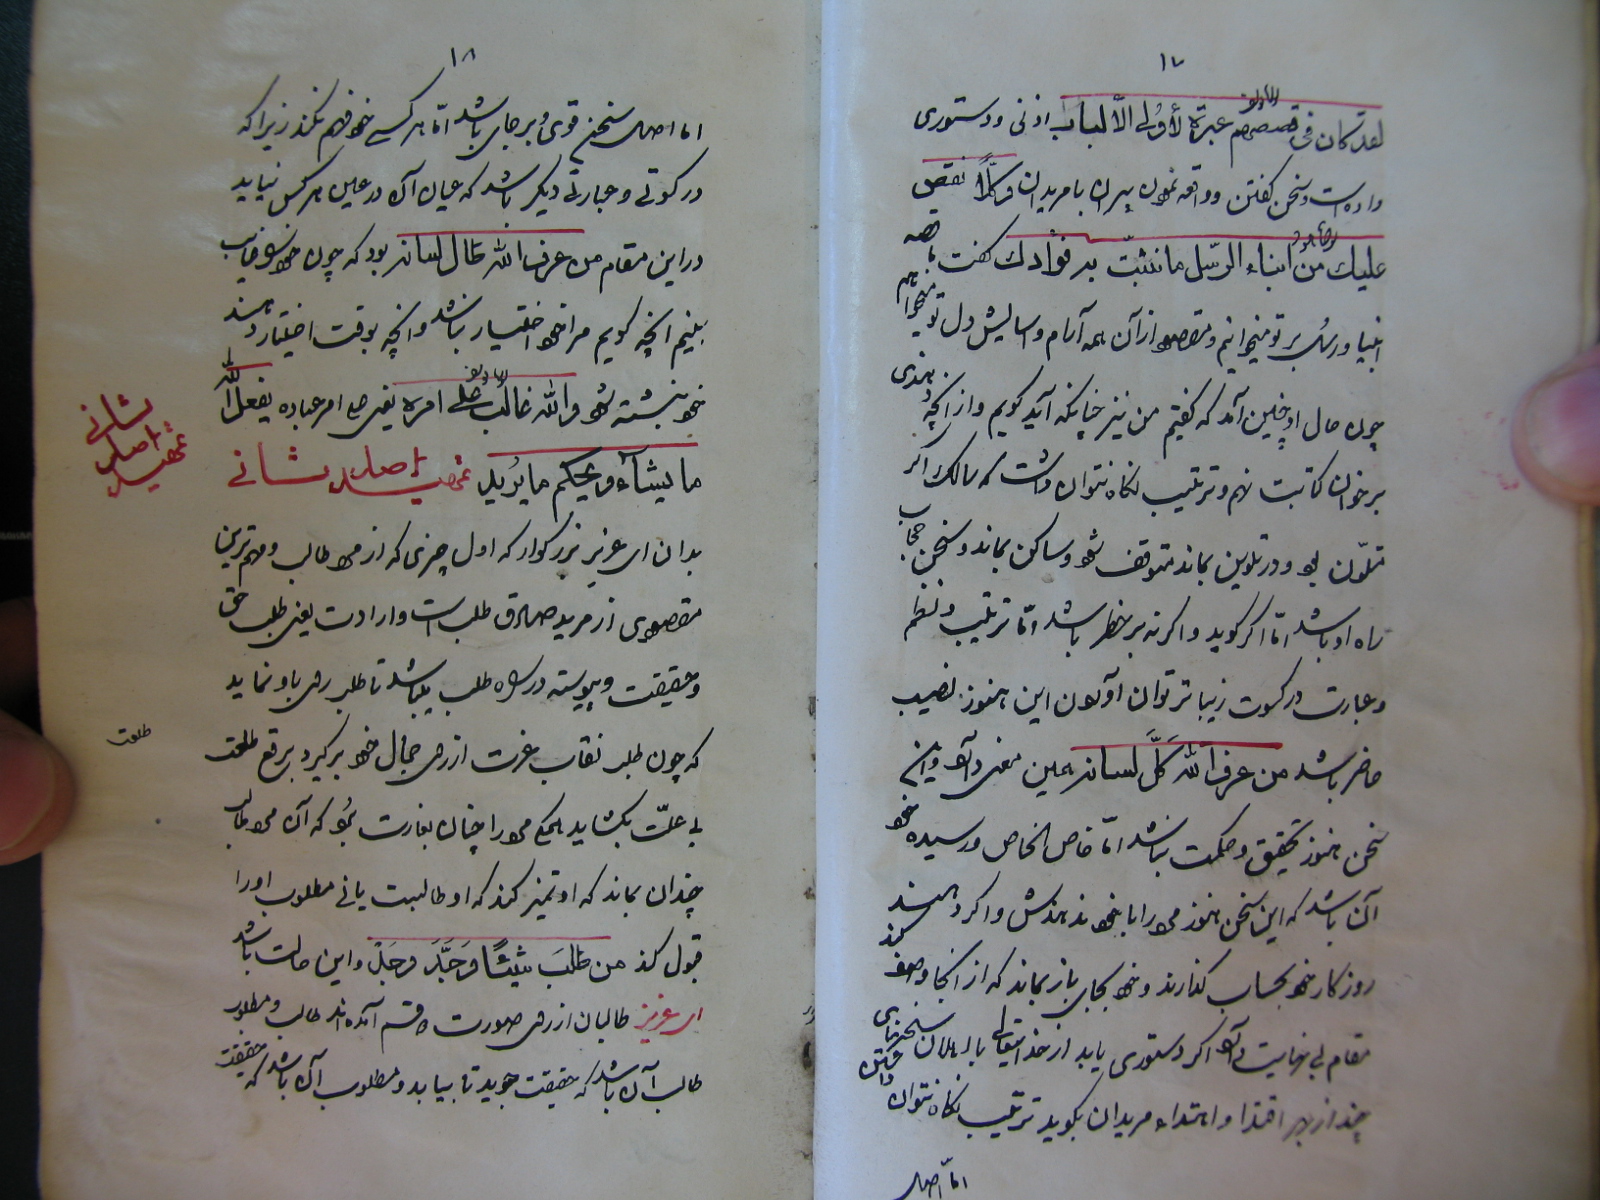 ۱۷
لقد کان فی قصصهم عبرة لأولی الألباب اذنی و دستوری
داده است و سخن گفتن و واقعه نمودن پیران با مریدان و کلّاً نقص
علیک من انباء الرّسل ما نثبّت به فؤادک گفت ما قصه
انبیا و رسل بر تو میخوانیم و مقصود از آن همه آرام و اسایش دل تو میخواهیم
چون حال او چنین آمد که گفتیم من نیز چنانکه آید گویم و از آنچه دهندی
بر خوان کتابت نهم و ترتیب نگاه نتوان داشت که سالک اگر
متلوّن بود و در تلوین بماند متوقف شود و ساکن بماند و سخن حجاب
راه او باشد امّا اگر گوید و اگر نه بر خطر باشد امّا ترتیب و نظم
و عبارت در کسوت زیباتر توان آوردن این هنوز نصیب
حاضر باشد من عرف الله کلّ لسانه همین معنی دارد و این
سخن هنوز تحقیق و حکمت نباشد امّا خاص الخاص و رسیده خود
آن باشد که این سخن هنوز می ورا با خود ندهندش و اگر دهند
روزگار خود بحساب گذارند و خود بجای باز بماند که از آنجا وصف کند
مقام بی نهایت دارد اگر دستوری یابد از خدایتعالی با اهلان سخنهای
چند از بهر اقتدا و اهتداء مریدان بگوید ترتیب نگاه نتوان داشتن
امّا اصل
۱۸
اما اصل سخن قوی و بر جای باشد امّا هر کسے خود فهم نکند زیرا که
در کسوتی و عبارتی دیگر باشد که عیان آن در عین هر کس نیاید
در این مقام من عرف الله طال لسانه بود که چون خود را غایب
بینیم آنچه گویم مرا خود اختیار نباشد و آنچه بوقت اختیار دهند
خود نبشته شود والله غالب علی امره یعنی علی امر عباده یفعل الله
ما یشآء و یحکم ما یرید تمهید اصل ثانی
ثانی
اصل
تمهید
بدان ای عزیز بزرگوار که اول چیزی که از مرد طالب و مهم ترین
مقصودی از مرید صادق طلب است و ارادت یعنی طلب حق
و حقیقت و پیوسته در راه طلب میباشد تا طلب روی باو نماید
که چون طلب نقاب عزت از روی جمال خود برگیرد و برقع طلعت
طلعت
بی علّت بگشاید همگی مرد را چنان بغارت برد که آن مرد طالب
چندان بماند که او تمیز کند که او طالبست یا نی مطلوب او را
قبول کند من طلب شیئًا و جدّ وجد و این حالت باشد
ای عزیز طالبان از روی صورت دو قسم آمده اند طالب و مطلوب
طالب آن باشد که حقیقت جوید تا بیابد و مطلوب آن باشد که حقیقت